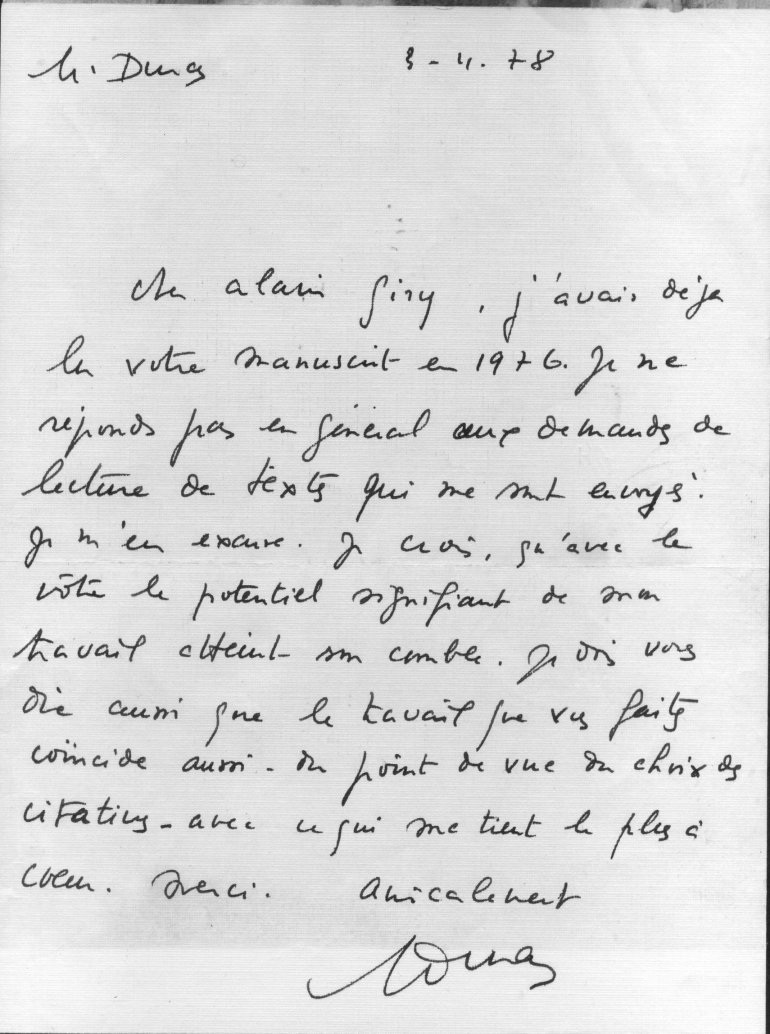 M. Duras 3-4.78
cher alain Giry, j'avais déjà
lu votre manuscrit en 1976. Je ne
réponds pas en général aux demandes de
lecture de textes qui me sont envoyés.
Je m'en excuse. Je crois, qu'avec le
vôtre le potentiel signifiant de mon
travail atteint son comble. Je dois vous
dire aussi que le travail que vous faites
coïncide aussi - du point de vue du choix des
citations - avec ce qui me tient le plus à
coeur. merci. Amicalement
MDuras